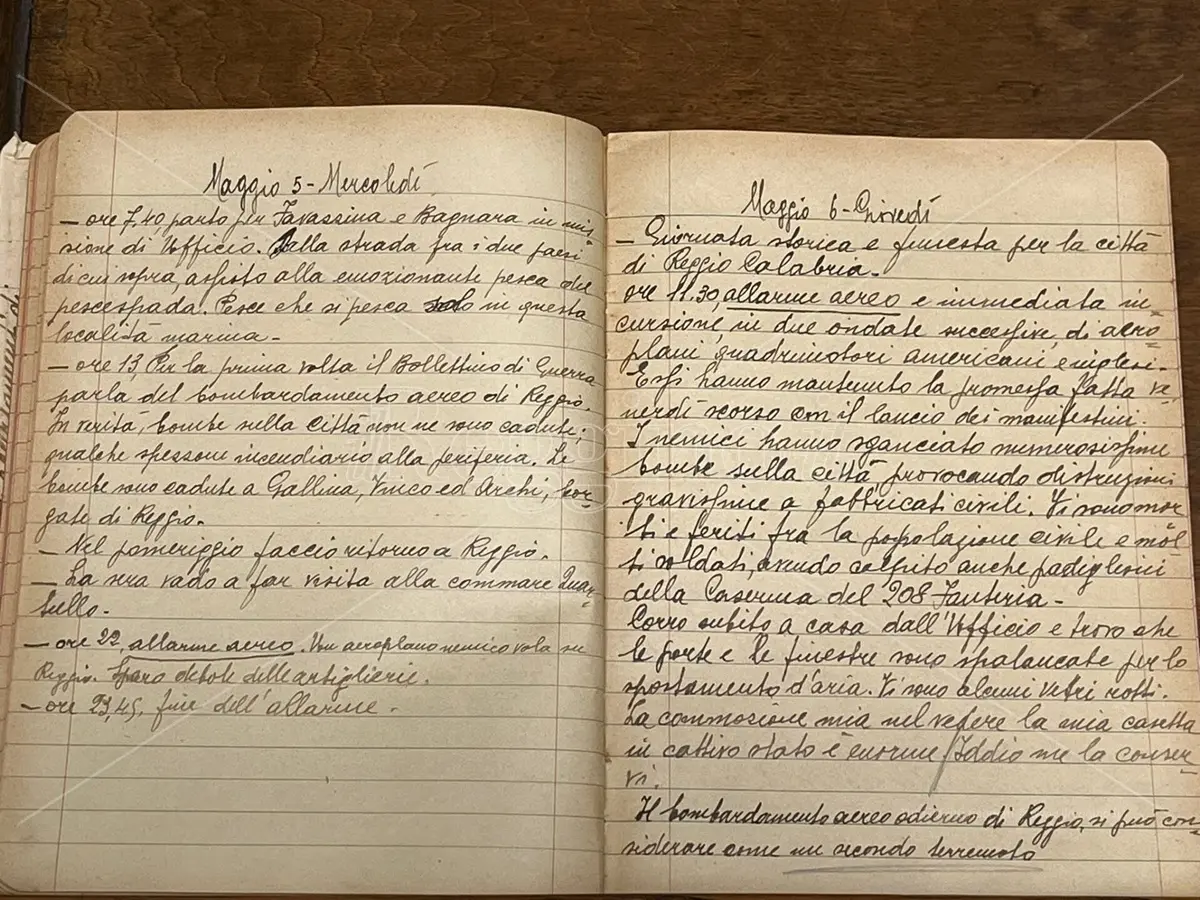 Maggio 5 - Mercoledí
— ore 7,40 parto per Favassina e Bagnara in mis-
sione di Ufficio. Dalla strada fra i due paesi
di cui sopra, assisto alla emozionante pesca del
pescespada. Pesce che si pesca solo in questa
località marina -
— ore 13, Per la prima volta il Bollettino di Guerra
parla del bombardamento aereo di Reggio.
In verità, bombe sulla Città non ne sono cadute;
qualche spezzone incendiario alla periferia. Le
bombe sono cadute a Gallina, Vinco ed Archi, bor-
gate di Reggio.
— Nel pomeriggio faccio ritorno a Reggio.
— La sera vado a far visita alla commare
— ore 22, allarme aereo. Un aeroplano nemico vola su
Reggio. Sparo debole delle artiglierie.
— ore 23,45, fine dell'allarme -
Maggio 6 - Giovedí
— Giornata storica e funesta per la città
di Reggio Calabria.
ore 11.30, allarme aereo e immediata in-
cursione, in due ondate successive, di aero-
plani quadrimotori americani e inglesi.
Essi hanno mantenuto la promessa fatta ve-
nerdí scorso con il lancio dei manifestini.
I nemici hanno sganciato numerosissime
bombe sulla città, provocando distruzioni
gravissime a fabbricati civili. Vi sono mor-
ti e feriti fra la popolazione civile e mol-
ti soldati, avendo colpito anche padiglioni
della Caserma del 208 Fanteria -
Corro subito a casa dall'Ufficio e trovo che
le porte e le finestre sono spalancate per lo
spostamento d'aria. Vi sono alcuni vetri rotti.
La commozione mia nel vedere la mia casetta
in cattivo stato è enorme / Iddio me la conser-
vi.
Il bombardamento aereo odierno di Reggio, si può con-
siderare come un secondo terremoto